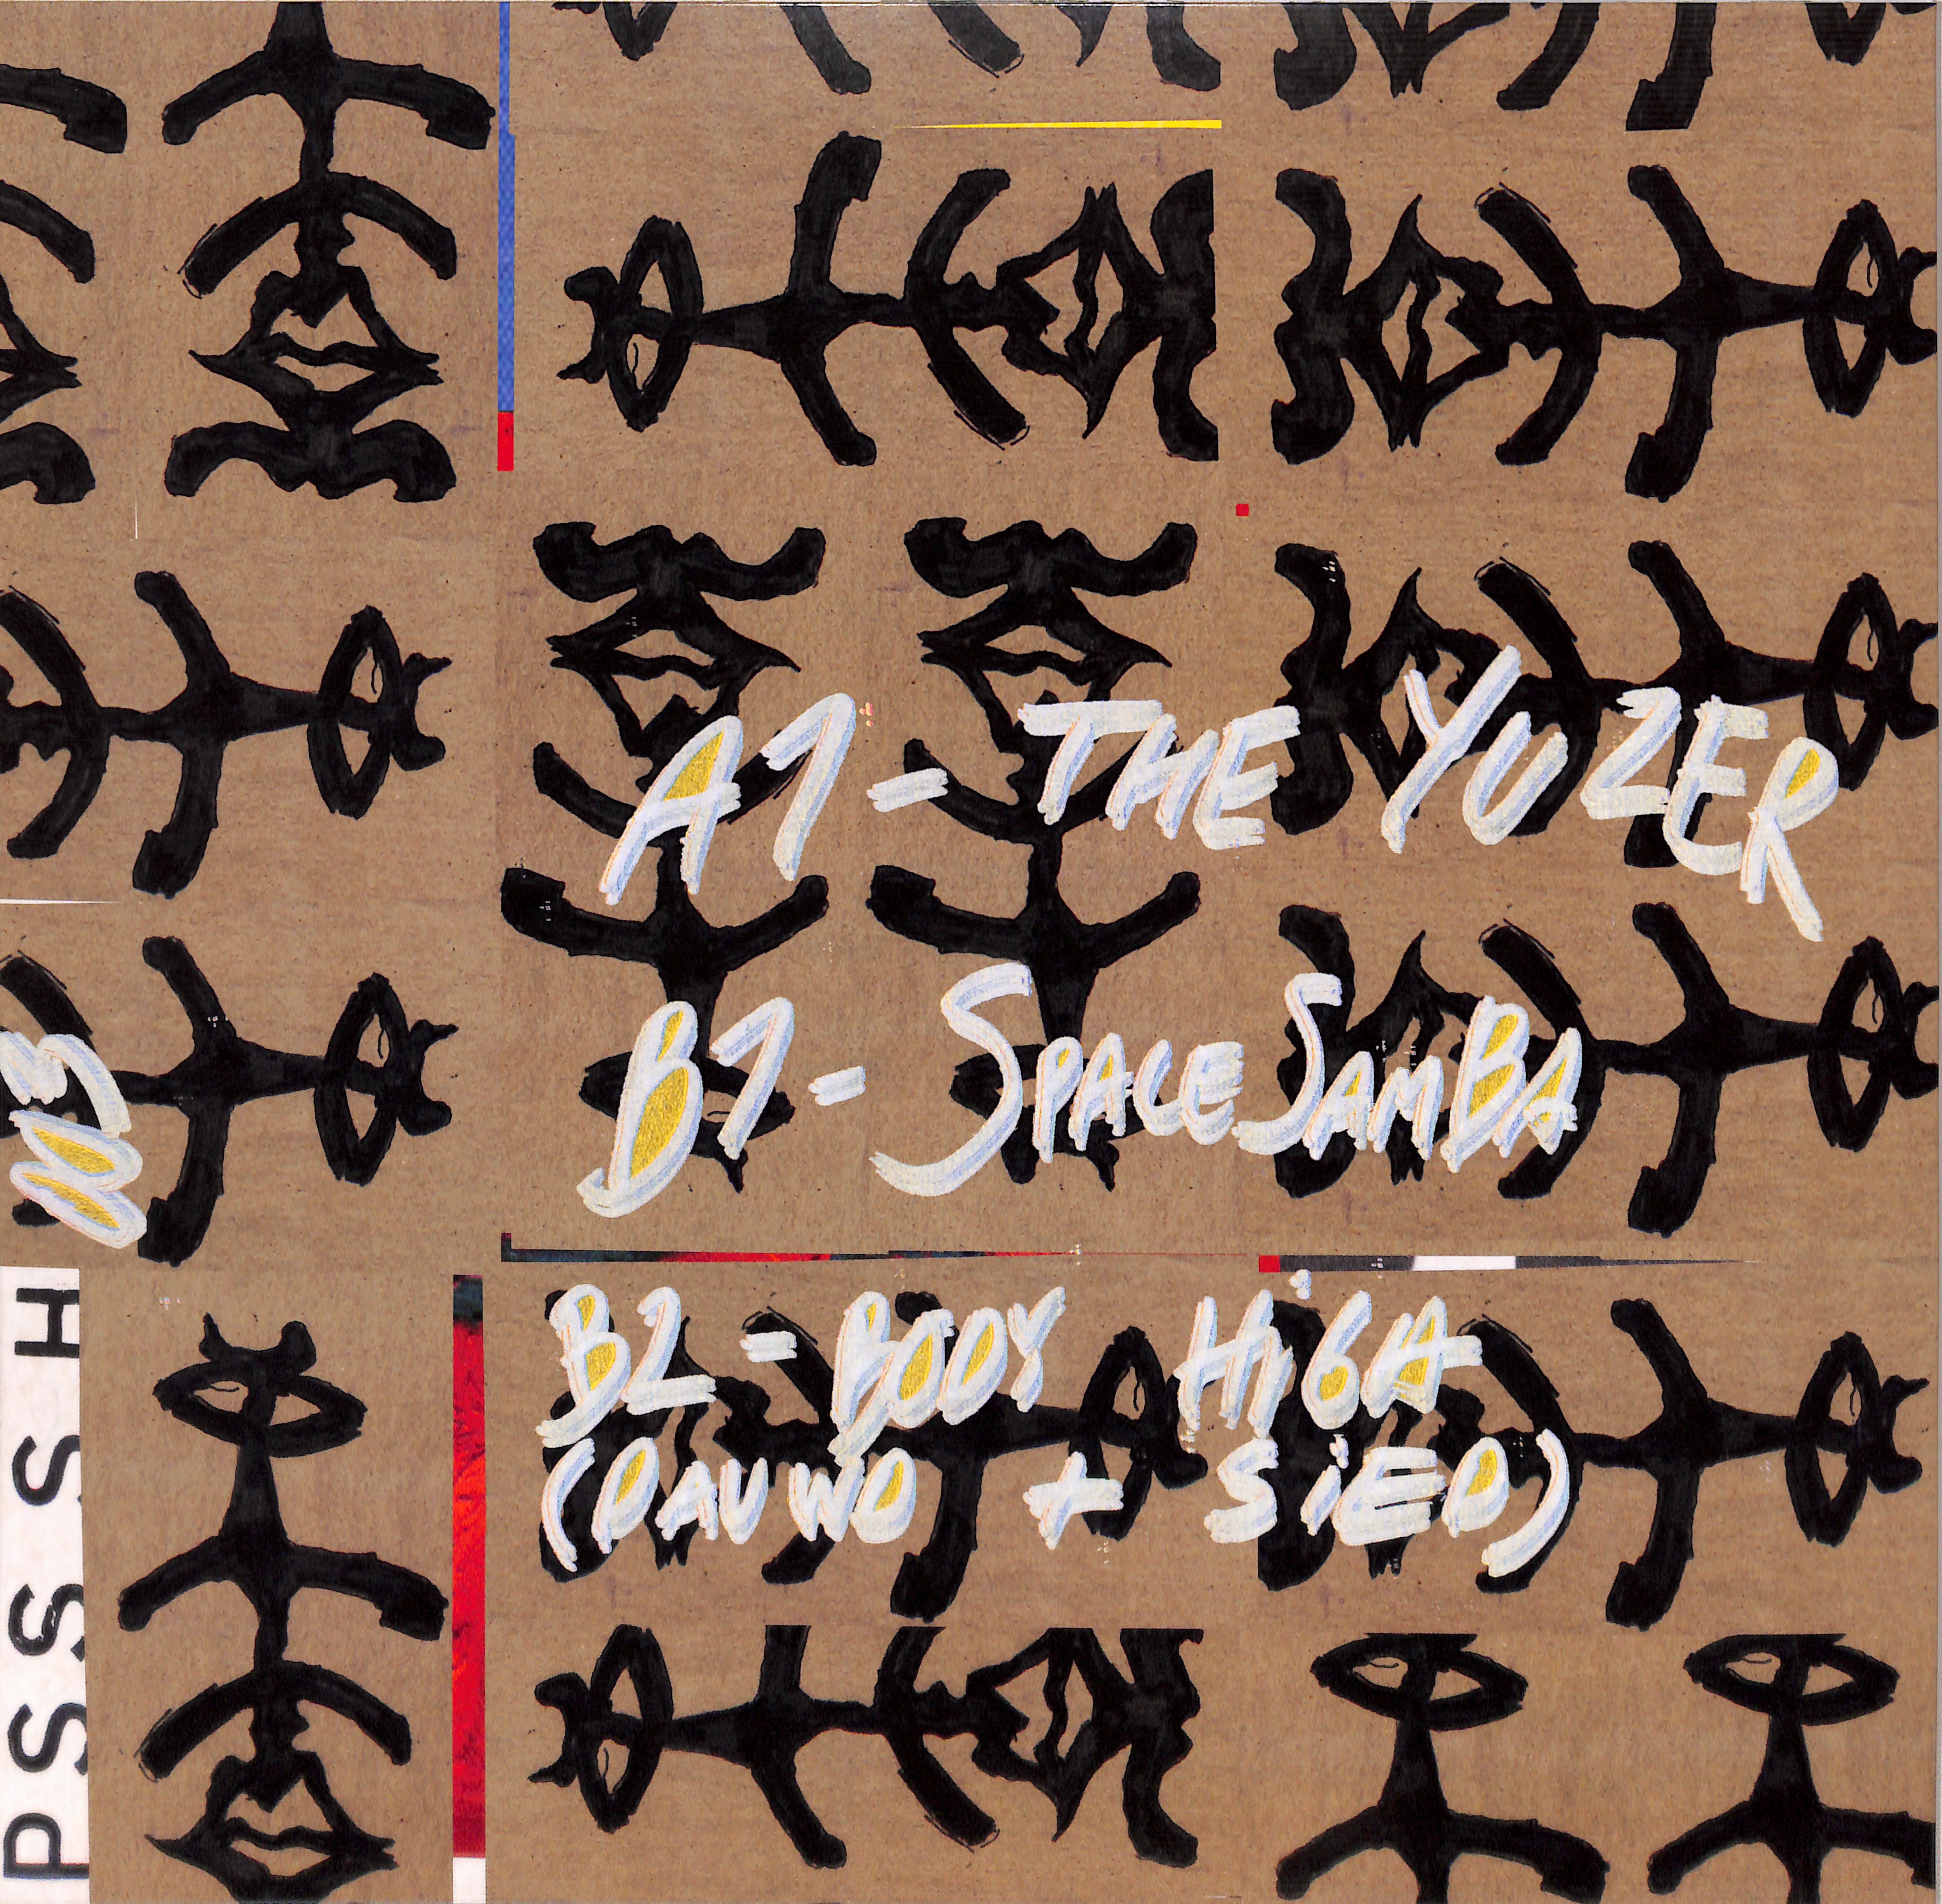 A1 - THE YUZER
B1 - SPACE SAMBA
B2 - BODY HiGH
(DAUWD + SiED)
PSSSH